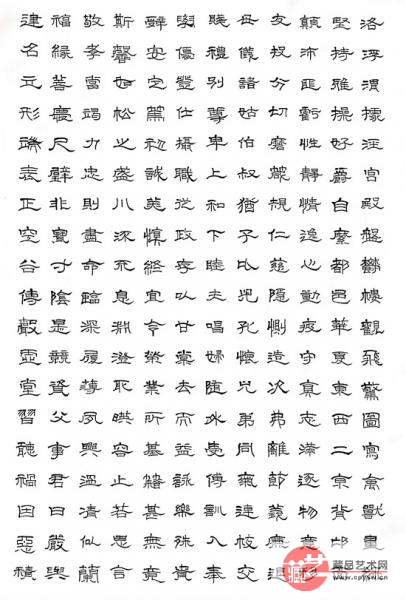 建名立形端表正空谷傳聲虛堂習聽禍因惡積
福緣善慶尺璧非寶寸陰是競資父事君曰嚴與
敬孝當竭力忠則盡命臨深履薄夙興溫凊似蘭
斯馨如松之盛川流不息淵澄取暎容止若思言
辭安定篤初誠美慎終宜令榮業所基籍甚無竟
學優登仕攝職從政存以甘棠去而益詠樂殊貴
賤禮別尊卑上和下睦夫唱婦隨外受傅訓入奉
母儀諸姑伯叔猶子比兒孔懷兄弟同氣連枝交
友投分切磨箴規仁慈隱惻造次弗離節義廉退
顛沛匪虧性靜情逸心動疲守真志滿逐物意移
堅持雅操好爵自縻都邑華夏東西二京背邙
洛浮渭據涇宮殿盤鬱樓觀飛驚圖寫禽獸畫
藏
藏品艺术网
www.cpysw.cn